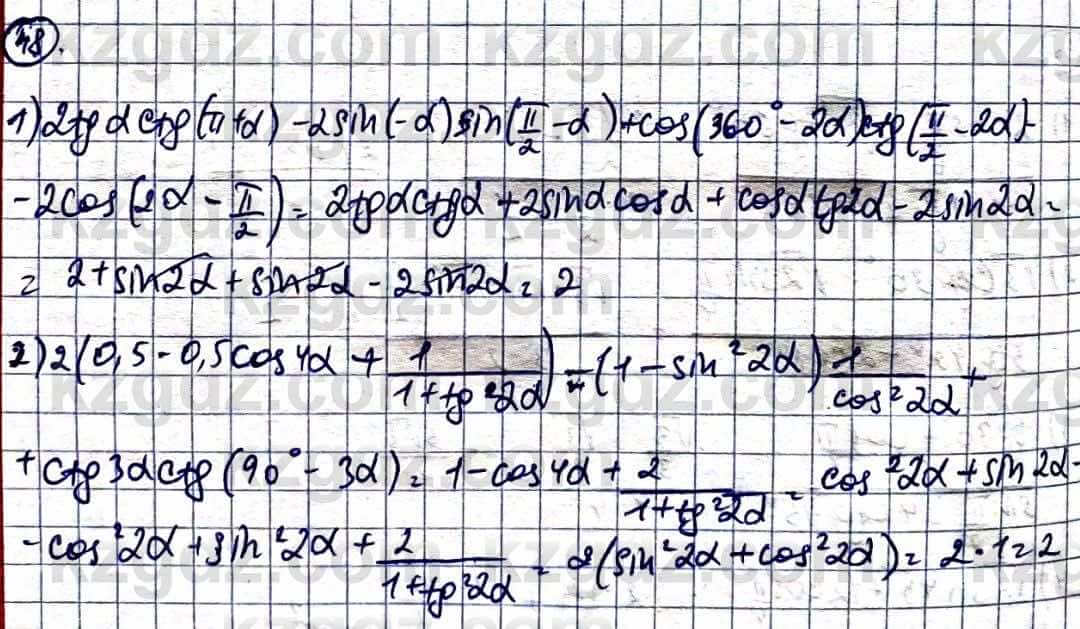 48.
1) 2tg α ctg(π+α) - 2sin(-α) sin(π/2 - α) + cos(360° - 2α) ctg(π/2 - 2α) -
- 2cos(2α - π/2) = 2tgαctgα + 2sinαcosα + cosαtg2α - 2sin2α =
= 2 + sin2α + sin2α - 2sin2α = 2
2) 2(0,5 - 0,5cos4α + 1/(1+tg²2α)) - (1 - sin²2α) 1/cos²2α +
+ ctg3αctg(90° - 3α) = 1 - cos4α + 2/(1+tg²2α) = cos²2α + sin2α -
- cos²2α + sin²2α + 2/(1+tg²2α) = 2(sin²2α + cos²2α) = 2·1 = 2
kzgdz.com